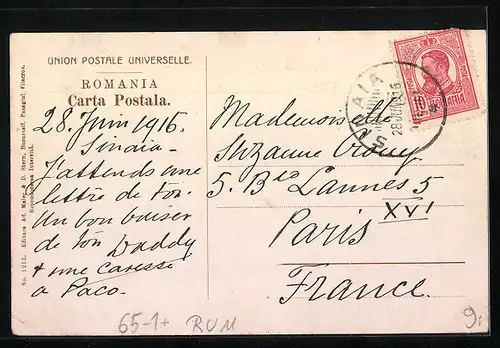 UNION POSTALE UNIVERSELLE.
ROMANIA
Carta Postala.
28 Juin 1916.
Sinaia-
J'attends une
lettre de toi.
Un bon baiser
de ton Daddy
+ une caresse
a Paco-
Mademoiselle
Suzanne
5. Bd Lannes 5
XVI
Paris
France.
SINAIA
28 JUN 916
10
No. 1213. Editura Ad. Maier & D. Stern, Bucuresti, Pasagiul Vilacros.
Reproducerea Interzisă.
65-1+ RUM
9.